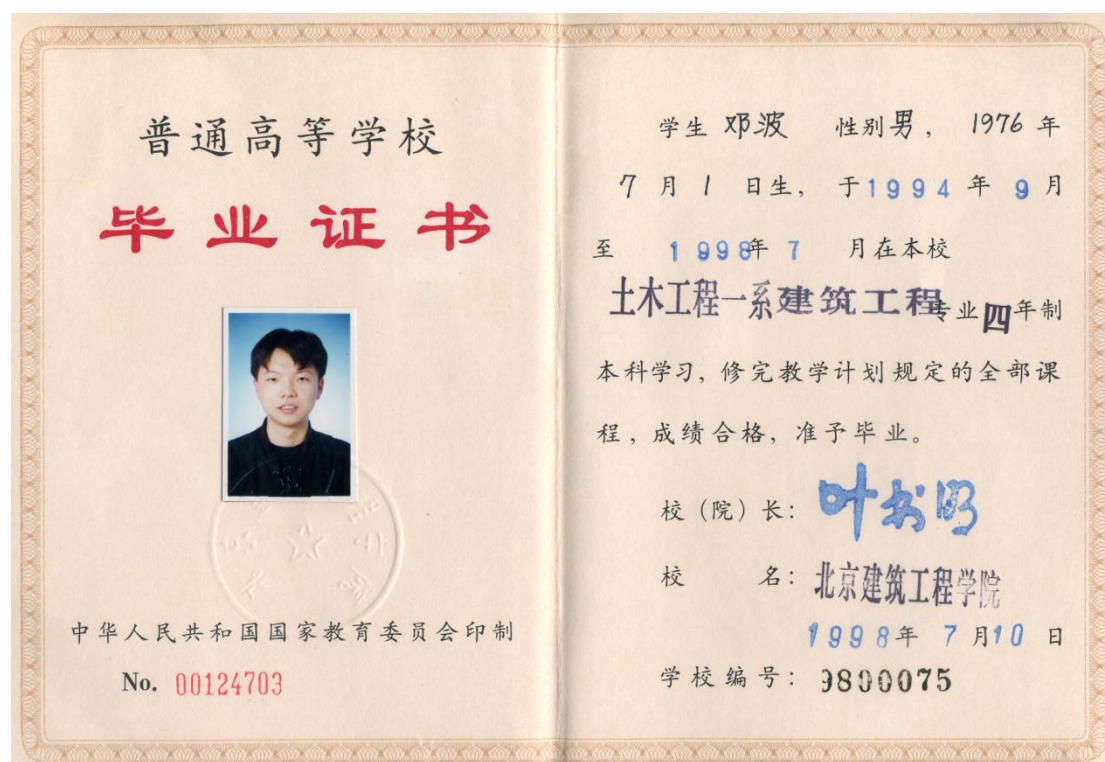 普通高等学校
毕业证书
中华人民共和国国家教育委员会印制
No. 00124703
学生 邓波 性别男, 1976 年
7 月 1 日生, 于1994 年 9 月
至 1998年 7 月在本校
土木工程一系建筑工程专业四年制
本科学习, 修完教学计划规定的全部课
程, 成绩合格, 准予毕业。
校 (院) 长: 叶书明
校 名: 北京建筑工程学院
1998年 7月10 日
学校编号: 9800075